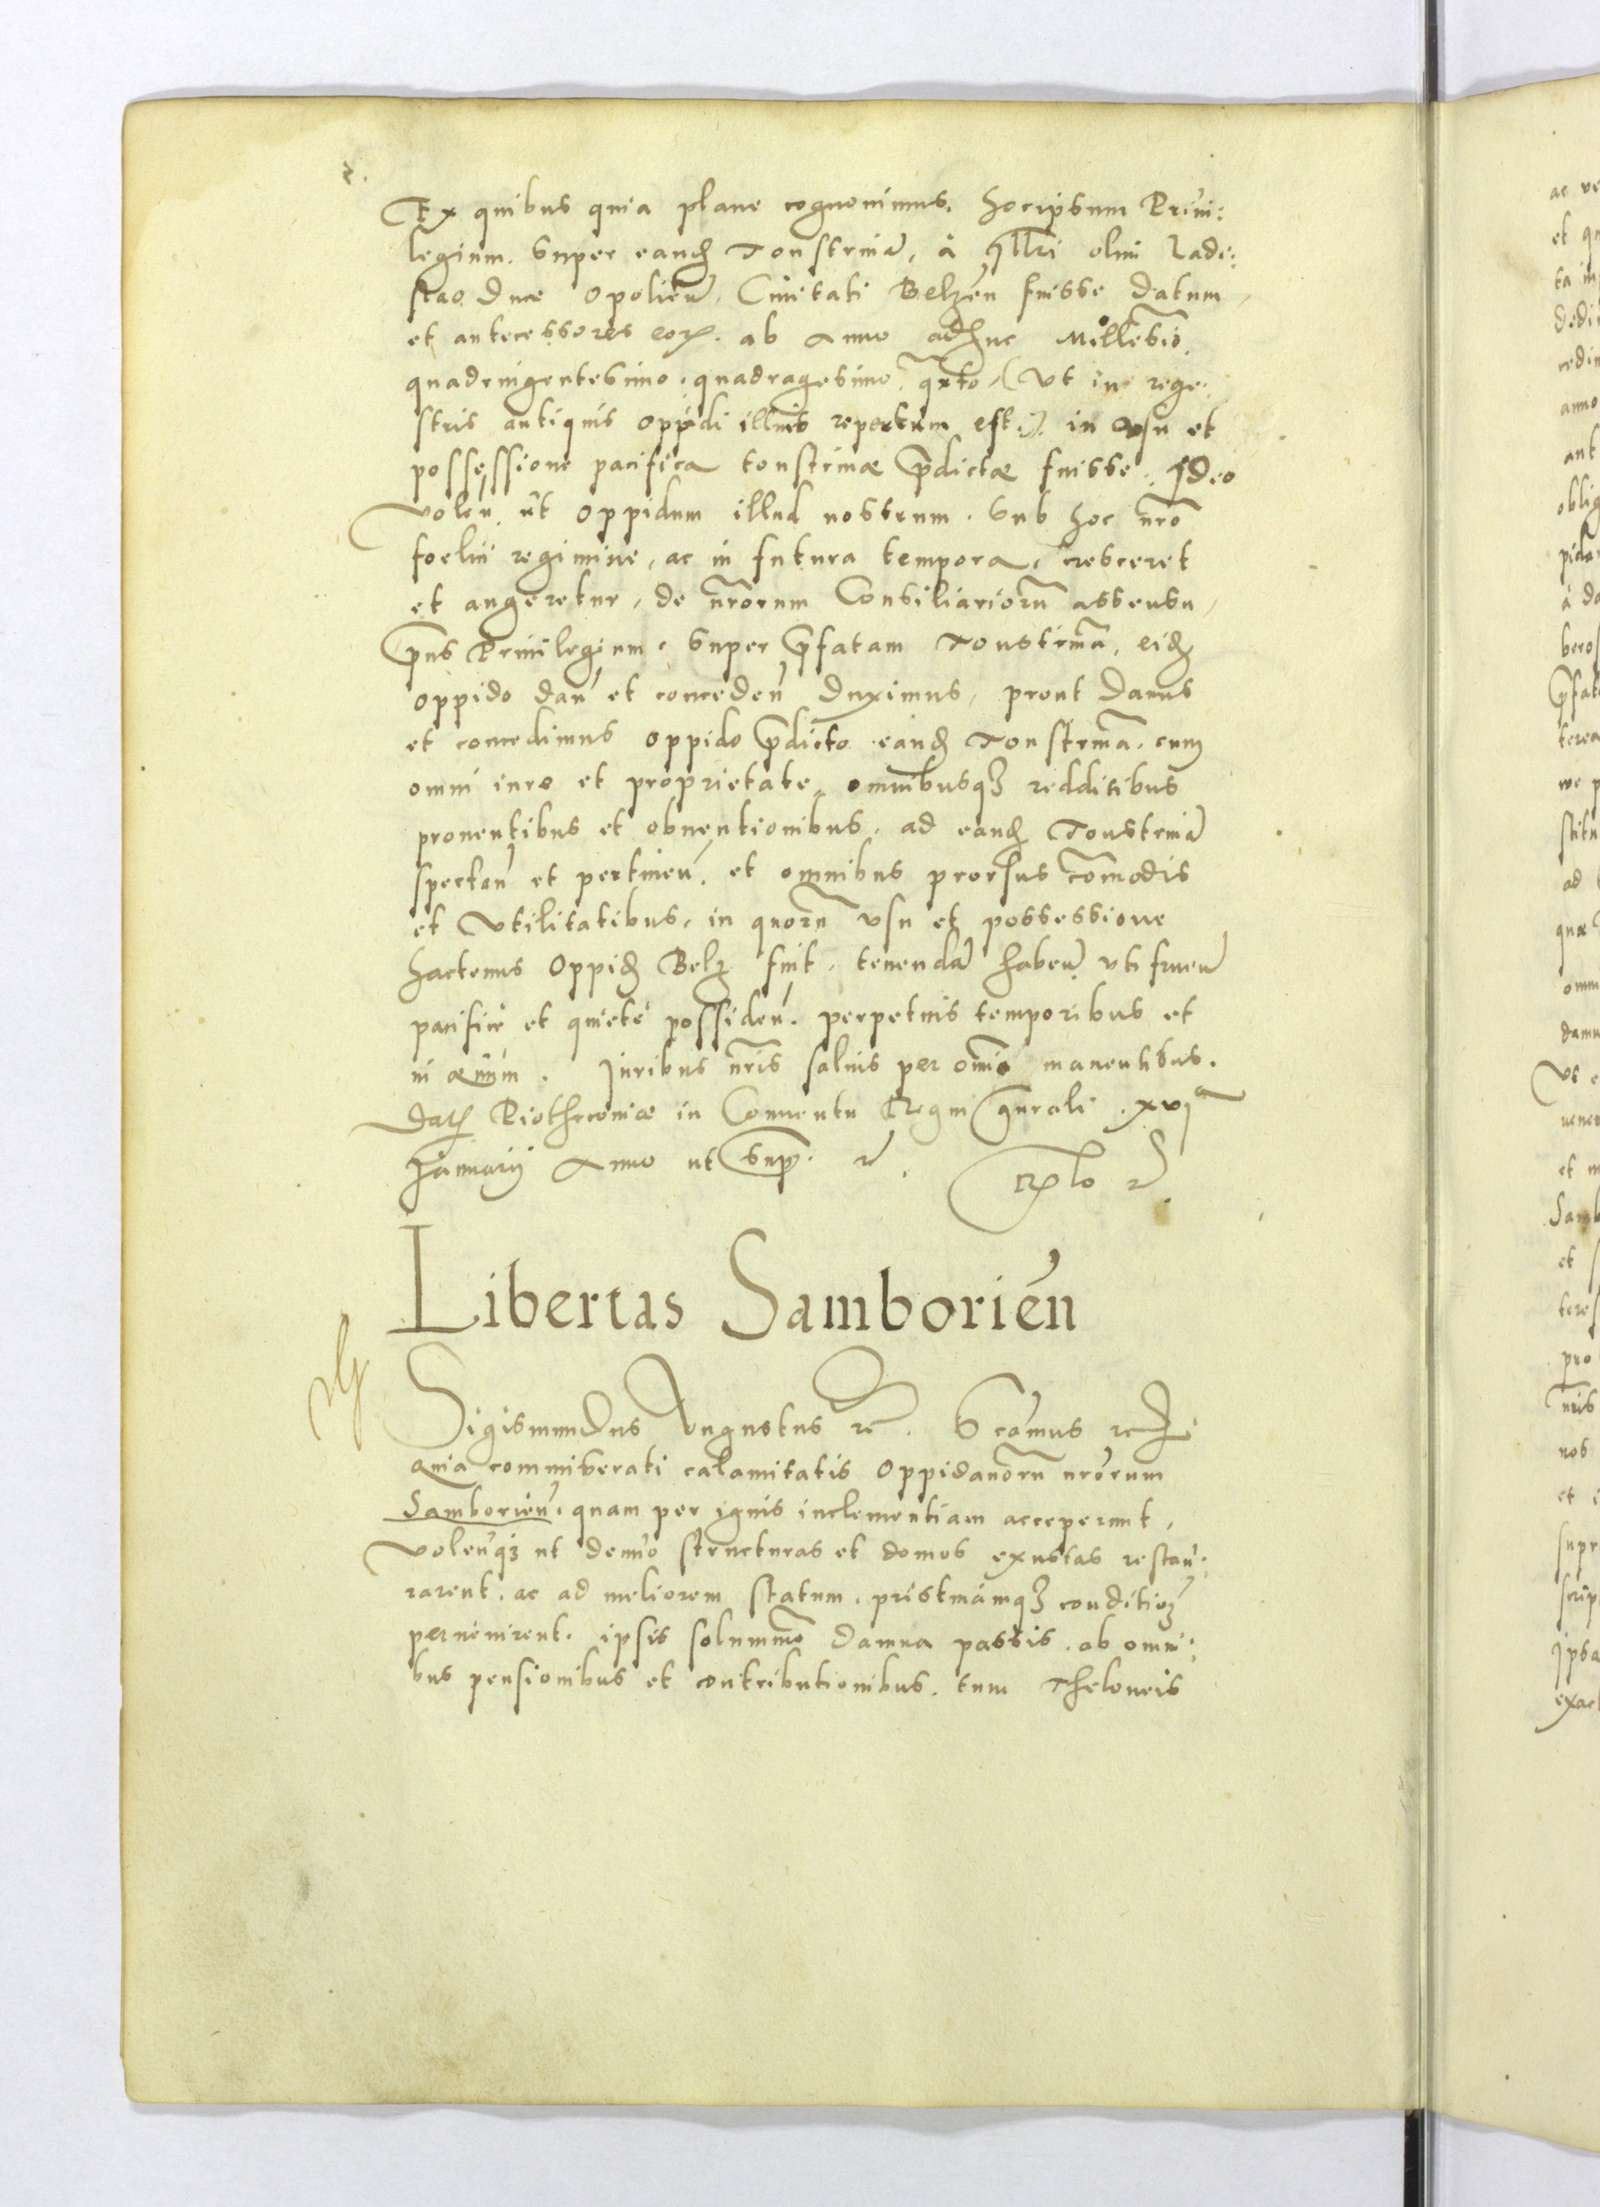 2.
Ex quibus quia plane cognovimus, hocipsum Privi:
legium super eand Tonstrina, à Illri olim Ladi:
slao Duce Opolien, Civitati Belzen fuisse datum,
et antecessores eor. ab Anno adhuc Millesio
quadringentesimo, quadragesimo qrto, (Ut in rege:
stris antiquis oppidi illius repertum est.) in usu et
possessione pacifica tonstrinæ pdictæ fuisse. Ideo
volen ut oppidum illud nostrum sub hoc nro
foelici regimine, ac in futura tempora, cresceret
et augeretur, de nrorum Consiliarioru assensu,
pns Privilegium super pfatam Tonstrina, eid
oppido dan et conceden duximus, prout damus
et concedimus oppido pdicto eand Tonstrina, cum
omni iure et proprietate, omnibusq redditibus
proventibus et obventionibus, ad eand Tonstrina
spectan et pertinen, et omnibus prorsus comodis
et utilitatibus, in quoru usu et possessione
hactenus Oppid Belz fuit, tenenda haben uti fruen
pacifice et quiete possiden, perpetuis temporibus et
in ævum. Iuribus nris salvis per omia manentibus.
Dat Piotrkoviæ in Conventu Regni gnrali. xvi
Januarij Anno ut sup. etc. Rlo etc.
Libertas Samborien
Sigismundus Augustus etc. Scamus etc.
Quia commiserati calamitatis Oppidanoru nrorum
Samborien, quam per ignis inclementiam acceperunt,
volenq ut denuo structuras et domos exustas restau:
rarent, ac ad meliorem statum, pristinamq conditio
pervenirent, ipsis solummo damna passis, ab omni:
bus pensionibus et contributionibus, tum Theloneis